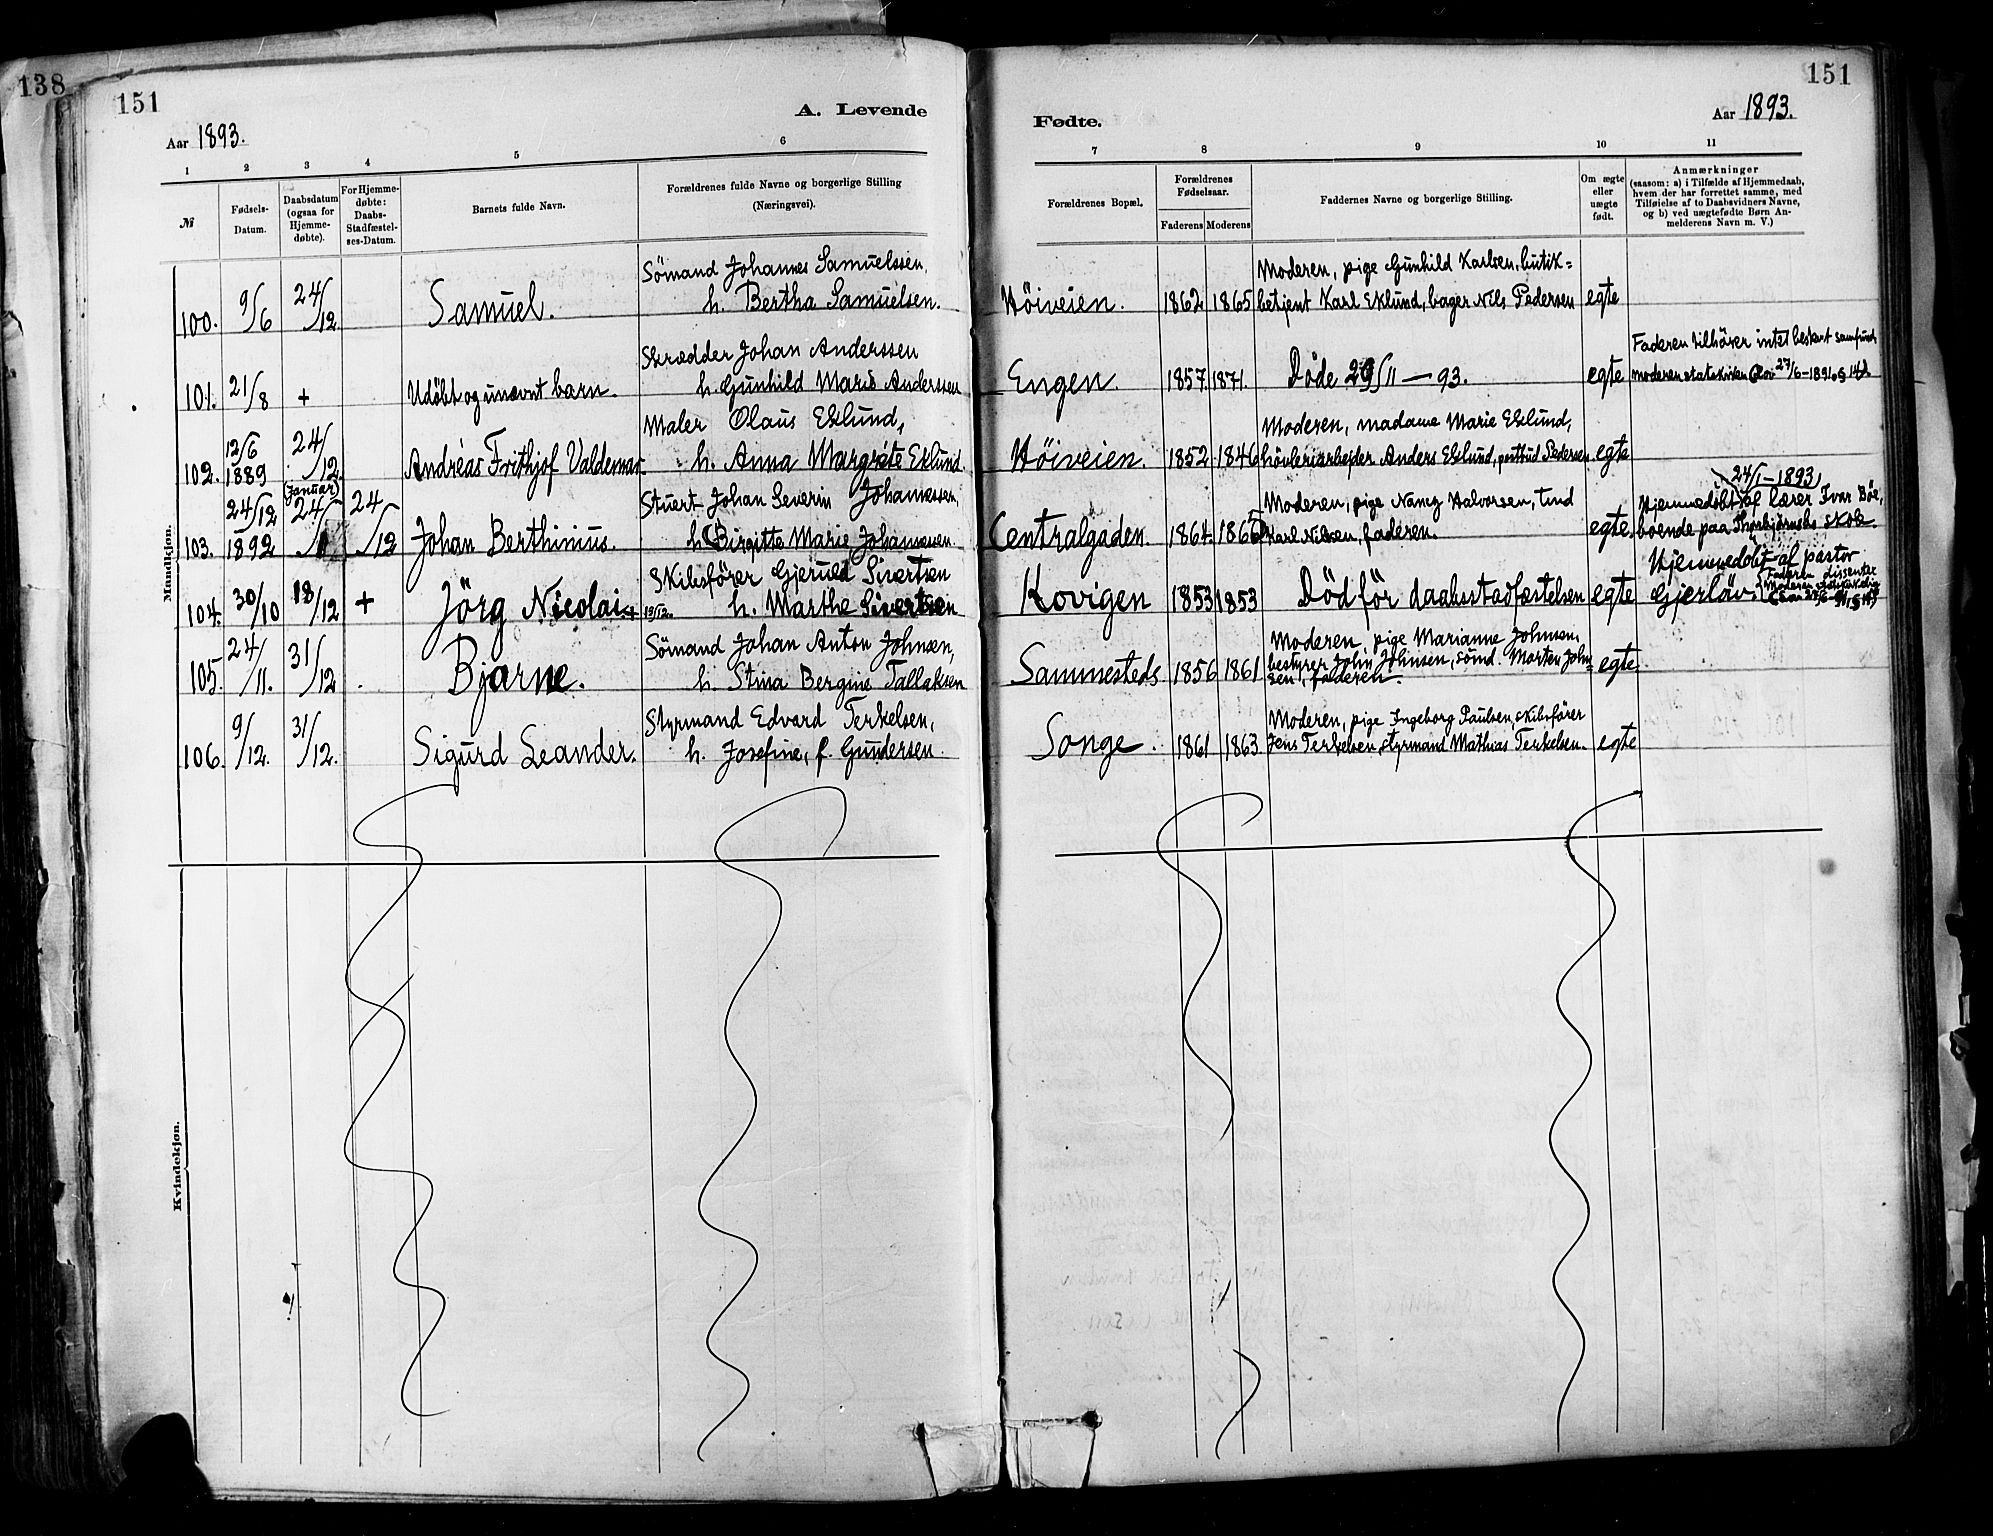 138
151
A. Levende
Aar 1893.
1 2 3 4 5 6
№ Fødsels-Datum. Daabsdatum (ogsaa for Hjemme-døbte). For Hjemme-døbte: Daabs-Stadfæstel-ses-Datum. Barnets fulde Navn. Forældrenes fulde Navne og borgerlige Stilling (Næringsvei).
Mandkjøn.
Sömand Johannes Samuelssen,
100. 9/6 24/12. Samuel. h. Bertha Samuelsen.
Skrædder Johan Anderssen
101. 21/8 + Udöbt og unævnt barn. h. Gunhild Marie Anderssen
Maler Olaus Eklund,
102. 12/6 1889 24/12. Andréas Frithjof Valdemar. h. Anna Margréte Eklund.
(Januar)
Stuert Johan Severin Johannessen,
103. 24/12 1892 24/1 24/12 Johan Berthinius. h. Birgitte Marie Johannessen.
Skibsförer Gjeruld Sivertsen
104. 30/10 18/12 + Jörg Nicolai + 19/12. h. Marthe Sivertsen
Sömand Johan Anton Johnsen,
105. 24/11. 31/12 Bjarne. h. Stina Bergine Tallaksen
Styrmand Edvard Terkelsen,
106. 9/12. 31/12. Sigurd Leander. h. Josefine, f. Gundersen.
Kvindekjøn.
151
Fødte.
Aar 1893.
7 8 9 10 11
Forældrenes Bopæl. Forældrenes Fødselsaar. Faderens Moderens Faddernes Navne og borgerlige Stilling. Om ægte eller uægte født. Anmærkninger (saasom: a) i Tilfælde af Hjemmedaab, hvem der har forrettet samme, med Tilføielse af to Daabsvidners Navne, og b) ved uægtefødte Børn An-melderens Navn m. V.)
Moderen, pige Gunhild Karlsen, butik=
Höiveien. 1862 1865 betjent Karl Eklund, bager Nils Pedersen egte
Faderen tilhörer intet bestemt samfund
Engen. 1857. 1871. Döde 29/11 — 93. egte moderen statskirken Lov 27/6-1891 §
Moderen, madame Marie Eklund,
Höiveien. 1852 1846 hövleriarbejder Anders Eklund, postbud Pedersen egte
24/1 - 1893
Moderen, pige Nancy Halvorsen, Hjemmedöbt af lærer Ivar Böe,
Centralgaden. 1864. Karl Nilsen, faderen. egte. boende paa Thorbjörnsbo skole.
Hjemmedöbt af pastor
Kovigen 1853 1853 Död för daabsstadfæstelsen egte Gjerlöv. Faderen dissenter
Moderen, pige Marianne Johnsen,
Sammesteds. 1856 1861 bestyrer John Johnsen, sömd. Morten John=
sen, faderen. egte.
Moderen, pige Ingeborg Paulsen, skibsförer
Songe. 1861 1863. Jens Terkelsen, styrmand Mathias Terkelsen. egte